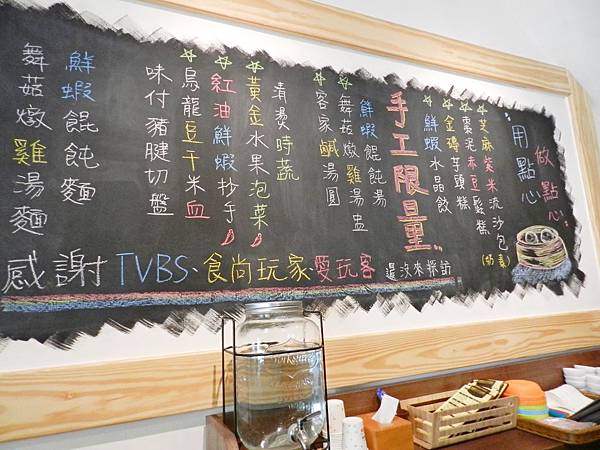 用點心
做點心
☆芝麻紫米流沙包(奶素)
☆棗泥赤豆鬆糕
☆金磚芋頭糕
☆鮮蝦水晶餃
手工限量
鮮蝦餛飩湯
☆舞菇燉雞湯盅
☆客家鹹湯圓
清燙時蔬
☆黃金水果泡菜
☆紅油鮮蝦抄手
☆烏龍豆干米血
味付豬腱切盤
鮮蝦餛飩麵
舞菇燉雞湯麵
感謝TVBS、食尚玩家、愛玩客 還沒來採訪